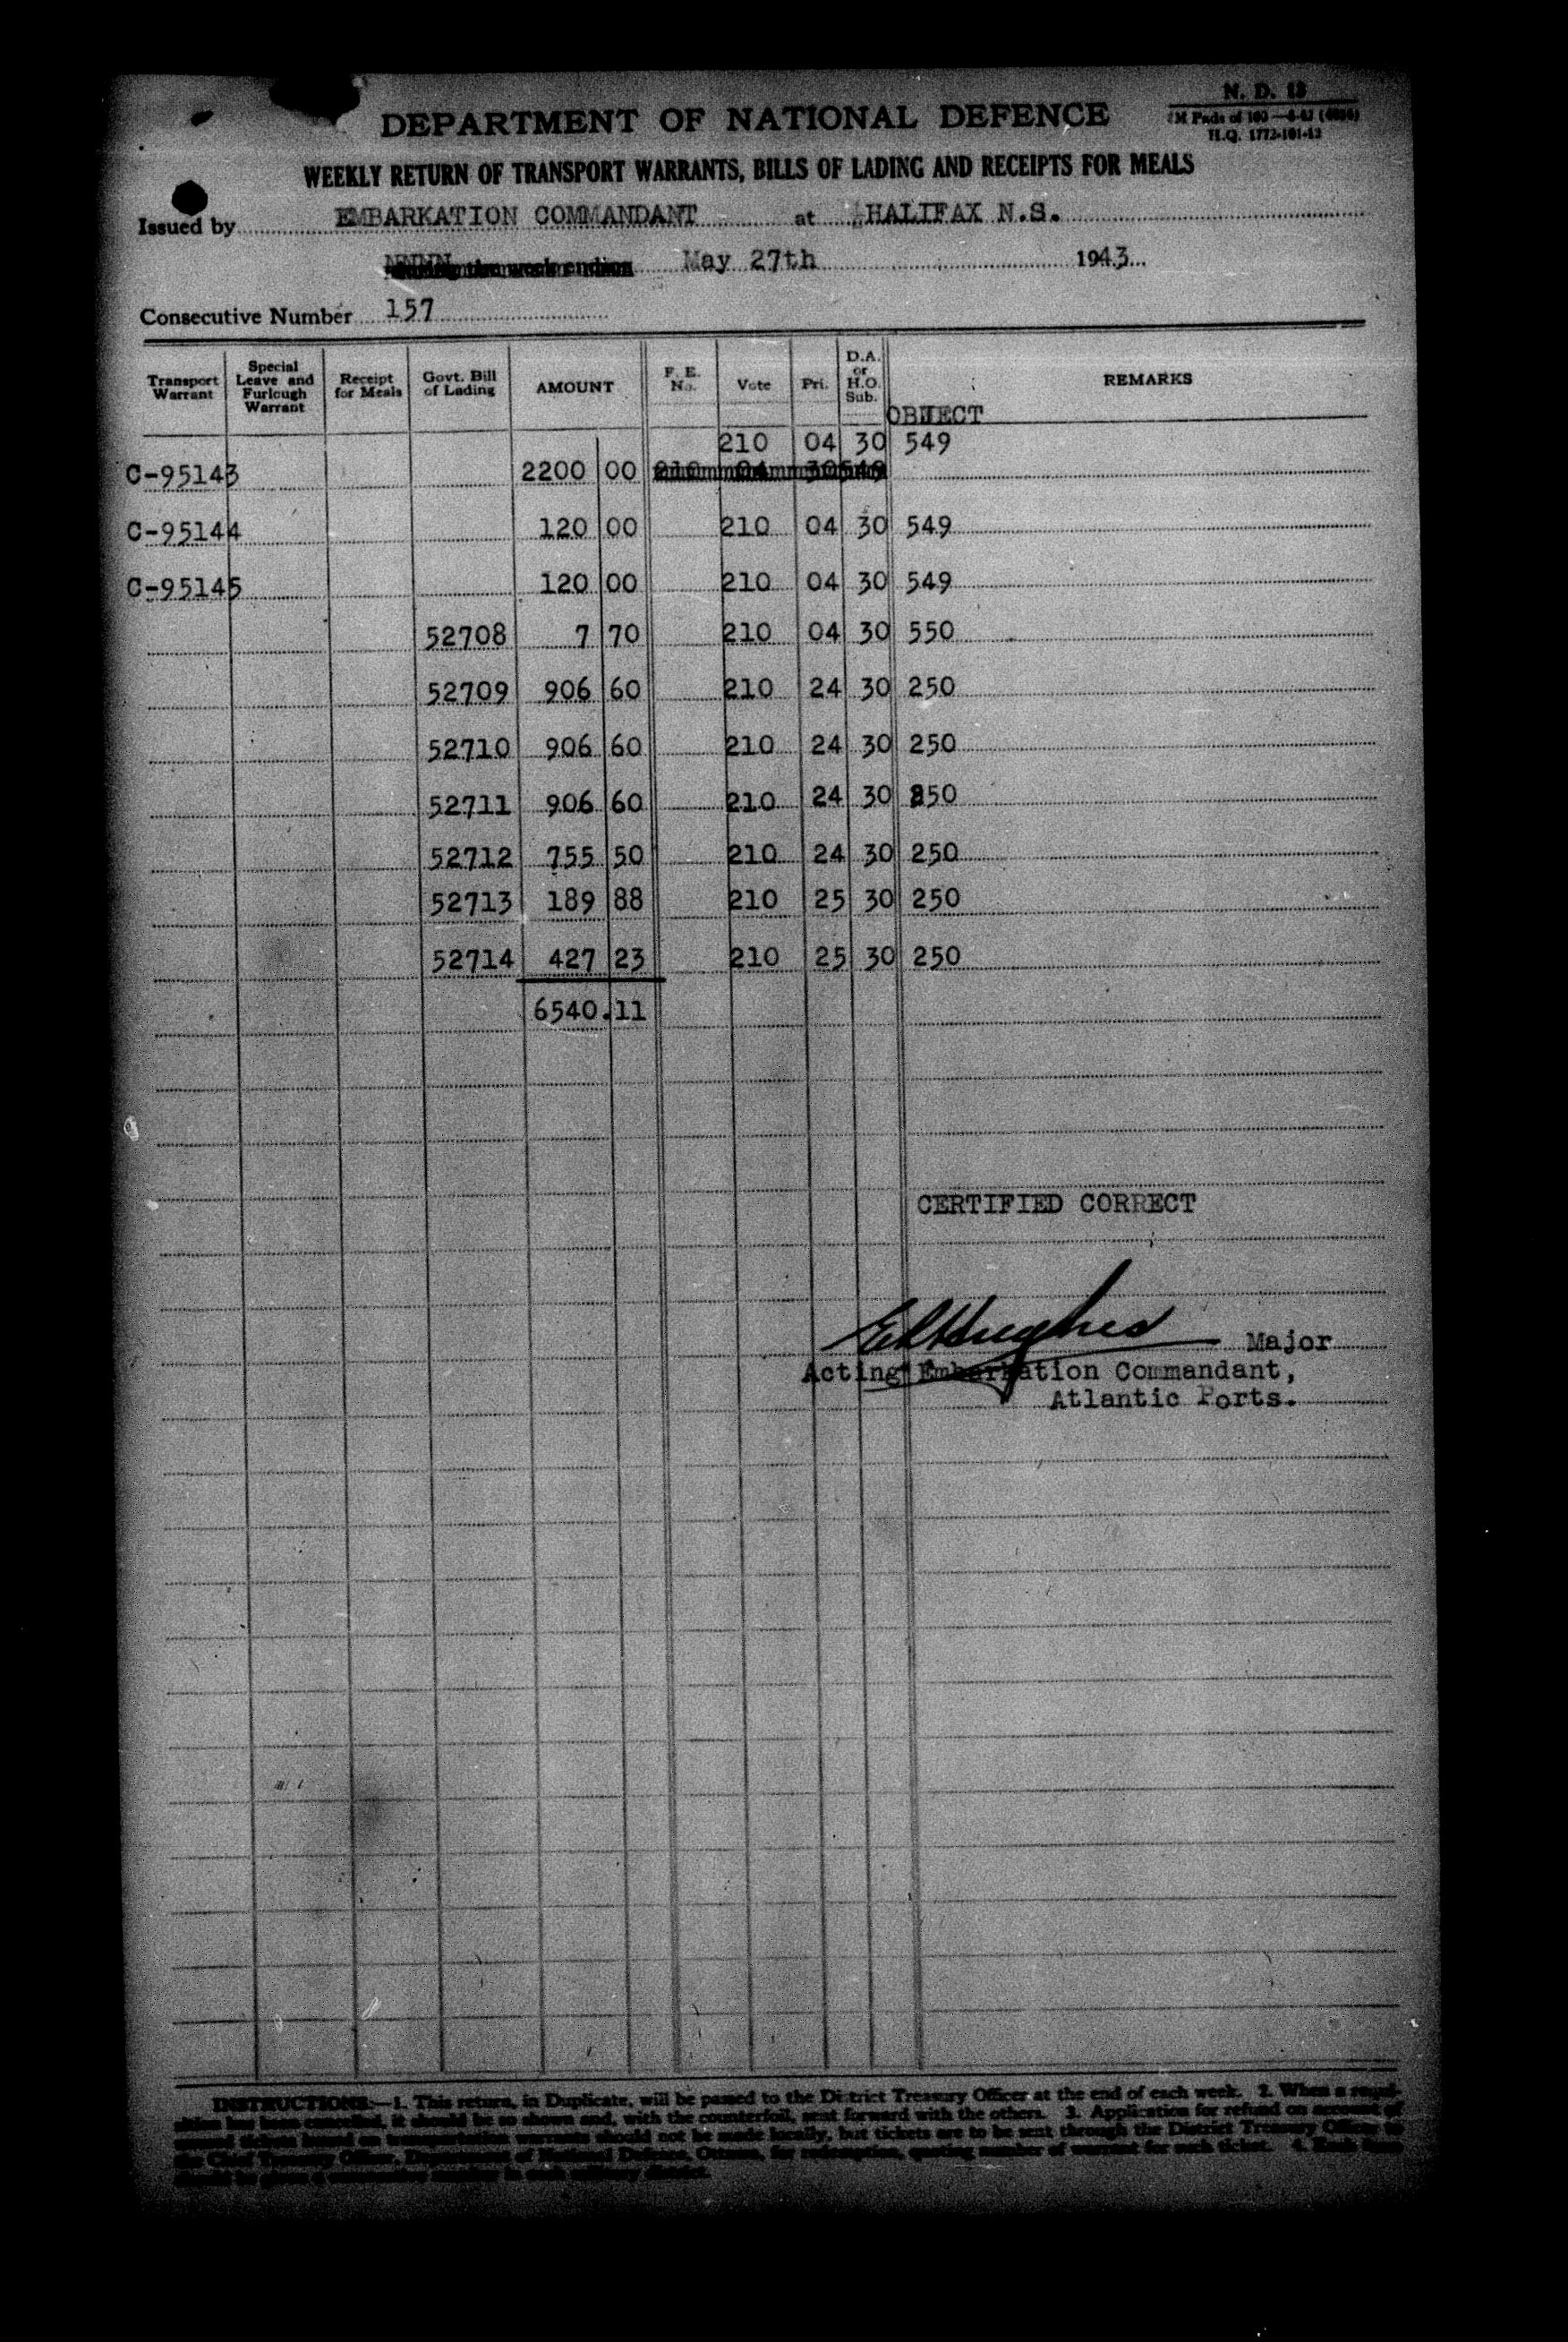 N. D. 13
DEPARTMENT OF NATIONAL DEFENCE
H.Q. 1772-101-13
WEEKLY RETURN OF TRANSPORT WARRANTS, BILLS OF LADING AND RECEIPTS FOR MEALS
Issued by EMBARKATION COMMANDANT at HALIFAX N.S.
May 27th 1943
Consecutive Number 157
Transport Warrant Special Leave and Furlough Warrant Receipt for Meals Govt. Bill of Lading AMOUNT F. E. No. Vote Pri. D.A. or H.O. Sub. REMARKS
OBJECT
210 04 30 549
C-95143 2200 00
C-95144 120 00 210 04 30 549
C-95145 120 00 210 04 30 549
52708 7 70 210 04 30 550
52709 906 60 210 24 30 250
52710 906 60 210 24 30 250
52711 906 60 210 24 30 250
52712 755 50 210 24 30 250
52713 189 88 210 25 30 250
52714 427 23 210 25 30 250
6540.11
CERTIFIED CORRECT
Hughes Major
Acting Embarkation Commandant,
Atlantic Ports.
INSTRUCTIONS:—1. This return, in Duplicate, will be passed to the District Treasury Officer at the end of each week. 2. When a
has been cancelled, it should be so shown and, with the counterfoil, sent forward with the others. 3. Application for refund on account of
should not be made locally, but tickets are to be sent through the District Treasury Officer to
the Chief Treasury Officer, Department of National Defence, Ottawa, for redemption, quoting number of warrant for each ticket. 4.